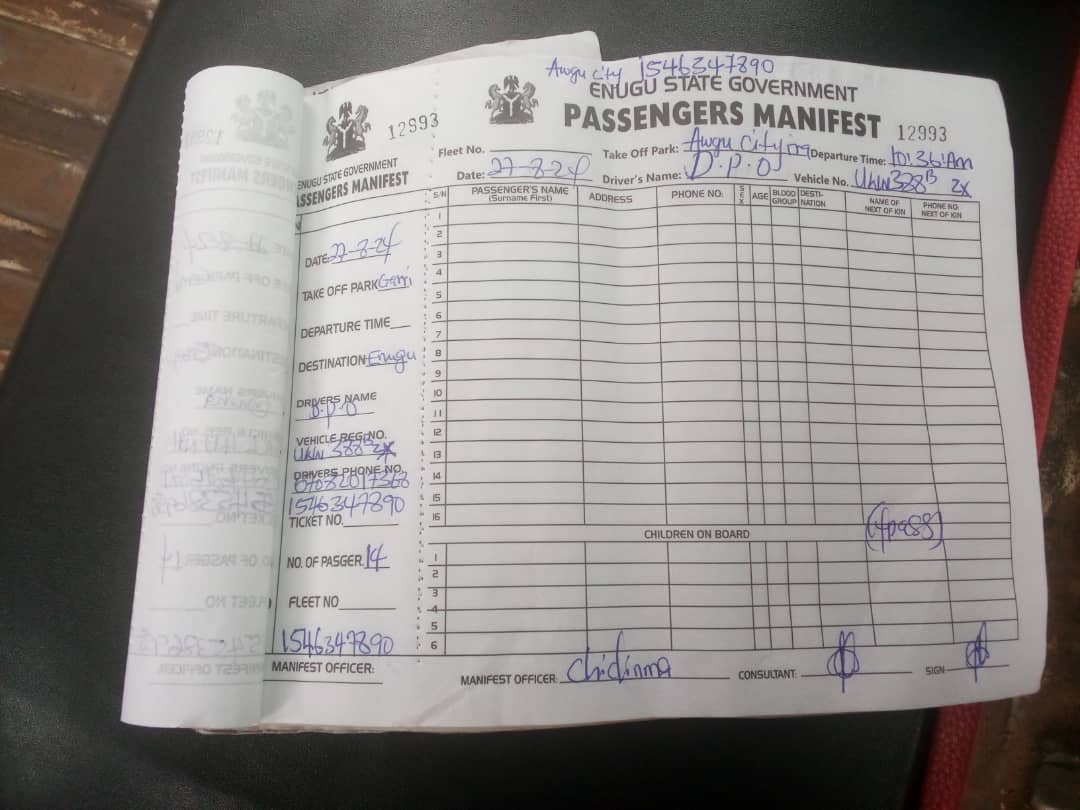 12993
ENUGU STATE GOVERNMENT
PASSENGERS MANIFEST
DATE: 27-8-24
TAKE OFF PARK
DEPARTURE TIME
DESTINATION Enugu
DRIVERS NAME
D.P.O
VEHICLE REG NO.
DRIVERS PHONE NO.
1546347890
TICKET NO.
NO. OF PASGER. 14
FLEET NO
1546347890
MANIFEST OFFICER:
Awgu city 1546347890
ENUGU STATE GOVERNMENT
PASSENGERS MANIFEST 12993
Fleet No. Take Off Park: Awgu City Departure Time: 10:36 Am
Date: 27-8-24 Driver's Name: D.P.O Vehicle No.
S/N PASSENGER'S NAME (Surname First) ADDRESS PHONE NO: SEX AGE BLOOD GROUP DESTI-NATION NAME OF NEXT OF KIN PHONE NO: NEXT OF KIN
1
2
3
4
5
6
7
8
9
10
11
12
13
14
15
16
CHILDREN ON BOARD
1
2
3
4
5
6
MANIFEST OFFICER: Chidinma CONSULTANT: SIGN